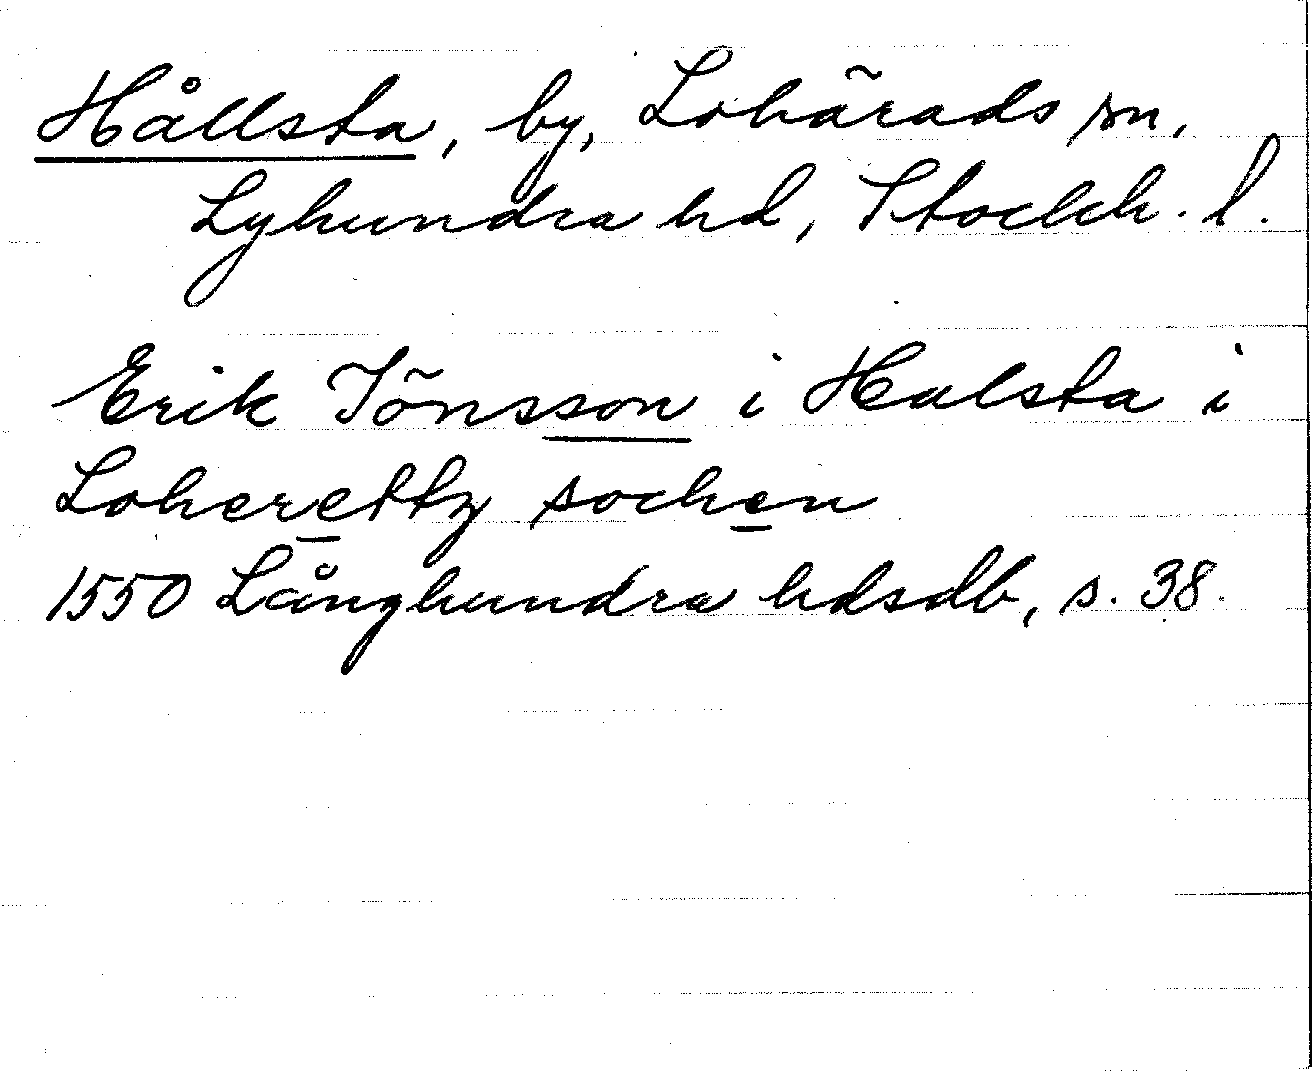 Hållsta, by, Lohärads sn,
Lyhundra hd, Stockh. l.
Erik Jönsson i Halsta i
Loherettz sochen
1550 Långhundra hdsdb, s. 38.